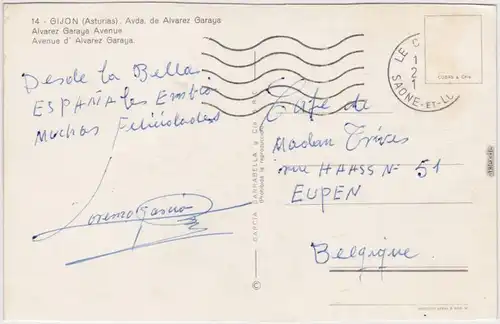 14 - GIJON (Asturias). Avda. de Alvarez Garaya
Alvarez Garaya Avenue
Avenue d' Alvarez Garaya.
Desde la Bella
ESPAÑA les Envio
Muchas Felicidades
Lorenzo Garcia
GARCIA GARRABELLA y CIA
©
LE C
SAONE-ET-LO
Cafe de
Madan Trives
rue HAASS N- 51
EUPEN
Belgique